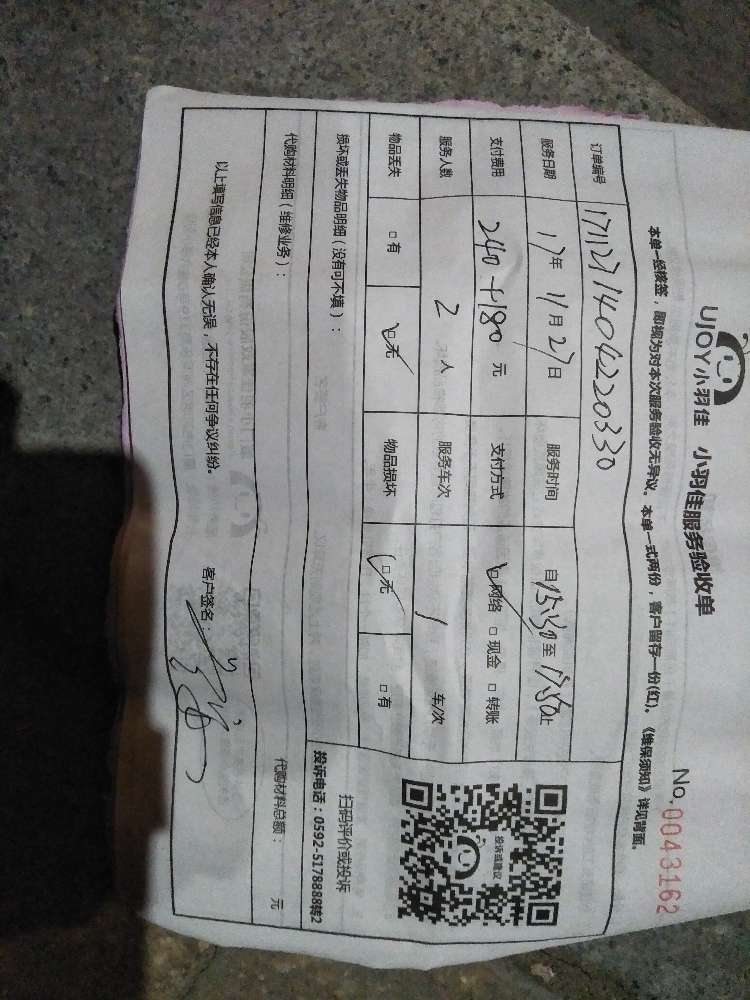 UJOY小羽佳 小羽佳服务验收单
No.0043162
本单一经核签，即视为对本次服务验收无异议。本单一式两份，客户留存一份(红)。《维保须知》详见背面。
订单编号 1711271404220330
服务日期 17年 11月 27日 服务时间 自15:30至17:50止
支付费用 240+180 元 支付方式 网络 现金 转账
服务人数 2 人 服务车次 1 车/次
物品丢失 有 无 物品损坏 无 有
投诉或建议
扫码评价或投诉
投诉电话：0592-5178888转2
损坏或丢失物品明细（没有可不填）：
代购材料明细（维修业务）： 代购材料总额： 元
以上填写信息已经本人确认无误，不存在任何争议纠纷。 客户签名：